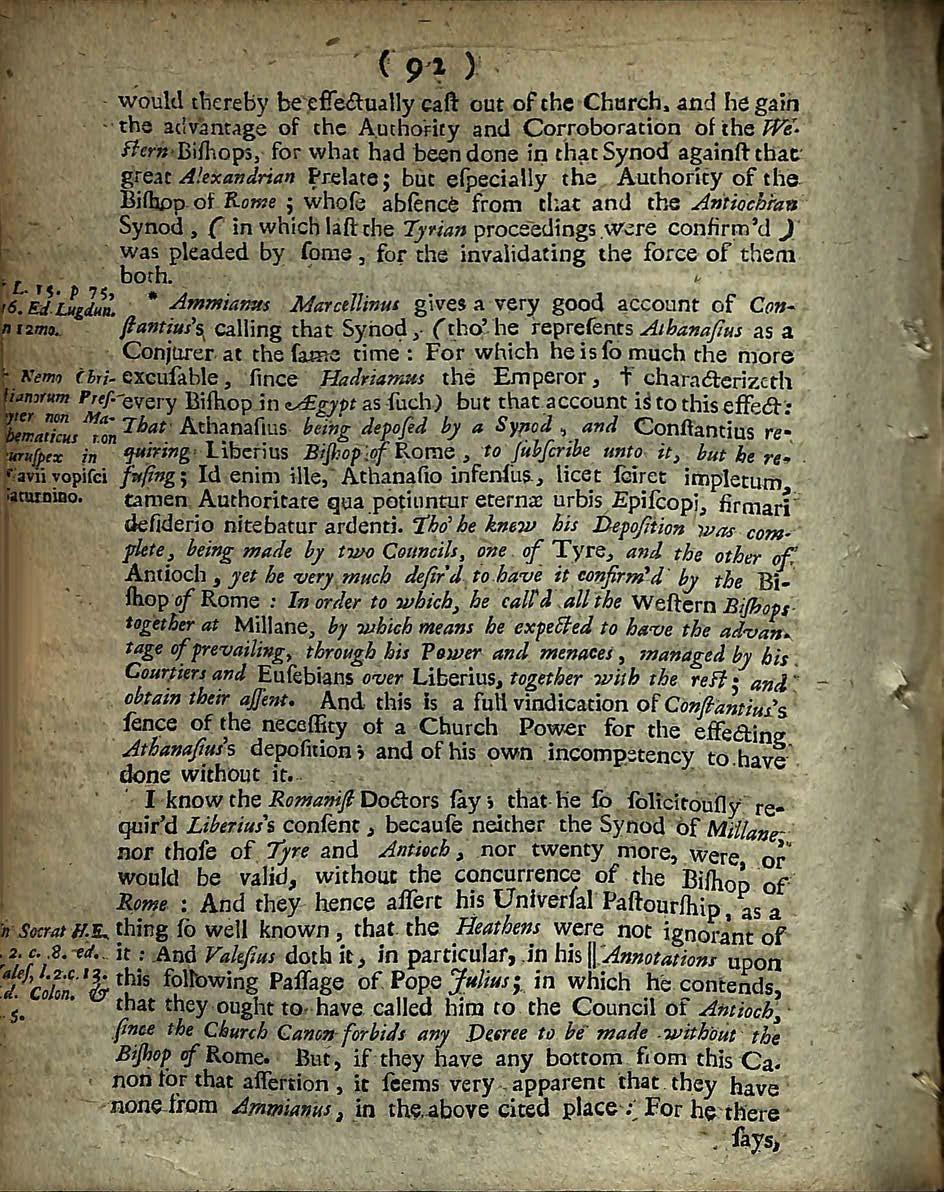 ( 92 )
would thereby be effectually caſt out of the Church, and he gain
the advantage of the Authority and Corroboration of the We-
ſtern Biſhops, for what had been done in that Synod againſt that
great Alexandrian Prelate; but eſpecially the Authority of the
Biſhop of Rome ; whoſe abſence from that and the Antiochian
Synod , ( in which laſt the Tyrian proceedings were confirm'd )
was pleaded by ſome , for the invalidating the force of them
both.
L. 15. p 75,
16. Ed. Lugdun.
n 12mo.
* Ammianus Marcellinus gives a very good account of Con-
ſtantius's calling that Synod , (tho' he repreſents Athanaſius as a
Conjurer at the ſame time : For which he is ſo much the more
excuſable , ſince Hadriamus the Emperor, † characterizeth
every Biſhop in Ægypt as ſuch) but that account is to this effect:
That Athanaſius being depoſed by a Synod , and Conſtantius re-
quiring Liberius Biſhop of Rome , to ſubſcribe unto it, but he re-
fuſing; Id enim ille, Athanaſio infenſus, licet ſciret impletum,
tamen Authoritate qua potiuntur eternæ urbis Epiſcopi, firmari
deſiderio nitebatur ardenti. Tho' he knew his Depoſition was com-
plete, being made by two Councils, one of Tyre, and the other of
Antioch , yet he very much deſir'd to have it confirm'd by the Bi-
ſhop of Rome : In order to which, he call'd all the Weſtern Biſhops
together at Millane, by which means he expected to have the advan-
tage of prevailing, through his Power and menaces , managed by his
Courtiers and Euſebians over Liberius, together with the reſt; and
obtain their aſſent. And this is a full vindication of Conſtantius's
ſence of the neceſſity of a Church Power for the effecting
Athanaſius's depoſition; and of his own incompetency to have
done without it.
Nemo Chri-
ſtianorum Preſ-
yter non Ma-
hematicus non
uruſpex in
avii vopiſci
aturnino.
I know the Romaniſt Doctors ſay; that he ſo ſolicitouſly re-
quir'd Liberius's conſent , becauſe neither the Synod of Millane,
nor thoſe of Tyre and Antioch , nor twenty more, were, or
would be valid, without the concurrence of the Biſhop of
Rome : And they hence aſſert his Univerſal Paſtourſhip, as a
thing ſo well known , that the Heathens were not ignorant of
it : And Valeſius doth it, in particular, in his || Annotations upon
this following Paſſage of Pope Julius; in which he contends,
that they ought to have called him to the Council of Antioch,
ſince the Church Canon forbids any Decree to be made without the
Biſhop of Rome. But, if they have any bottom from this Ca-
non for that aſſertion , it ſeems very apparent that they have
none from Ammianus, in the above cited place : For he there
n Socrat H.E.
. 2. c. 8. ed.
aleſ, l.2.c.13.
d. Colon. &
5.
ſays,